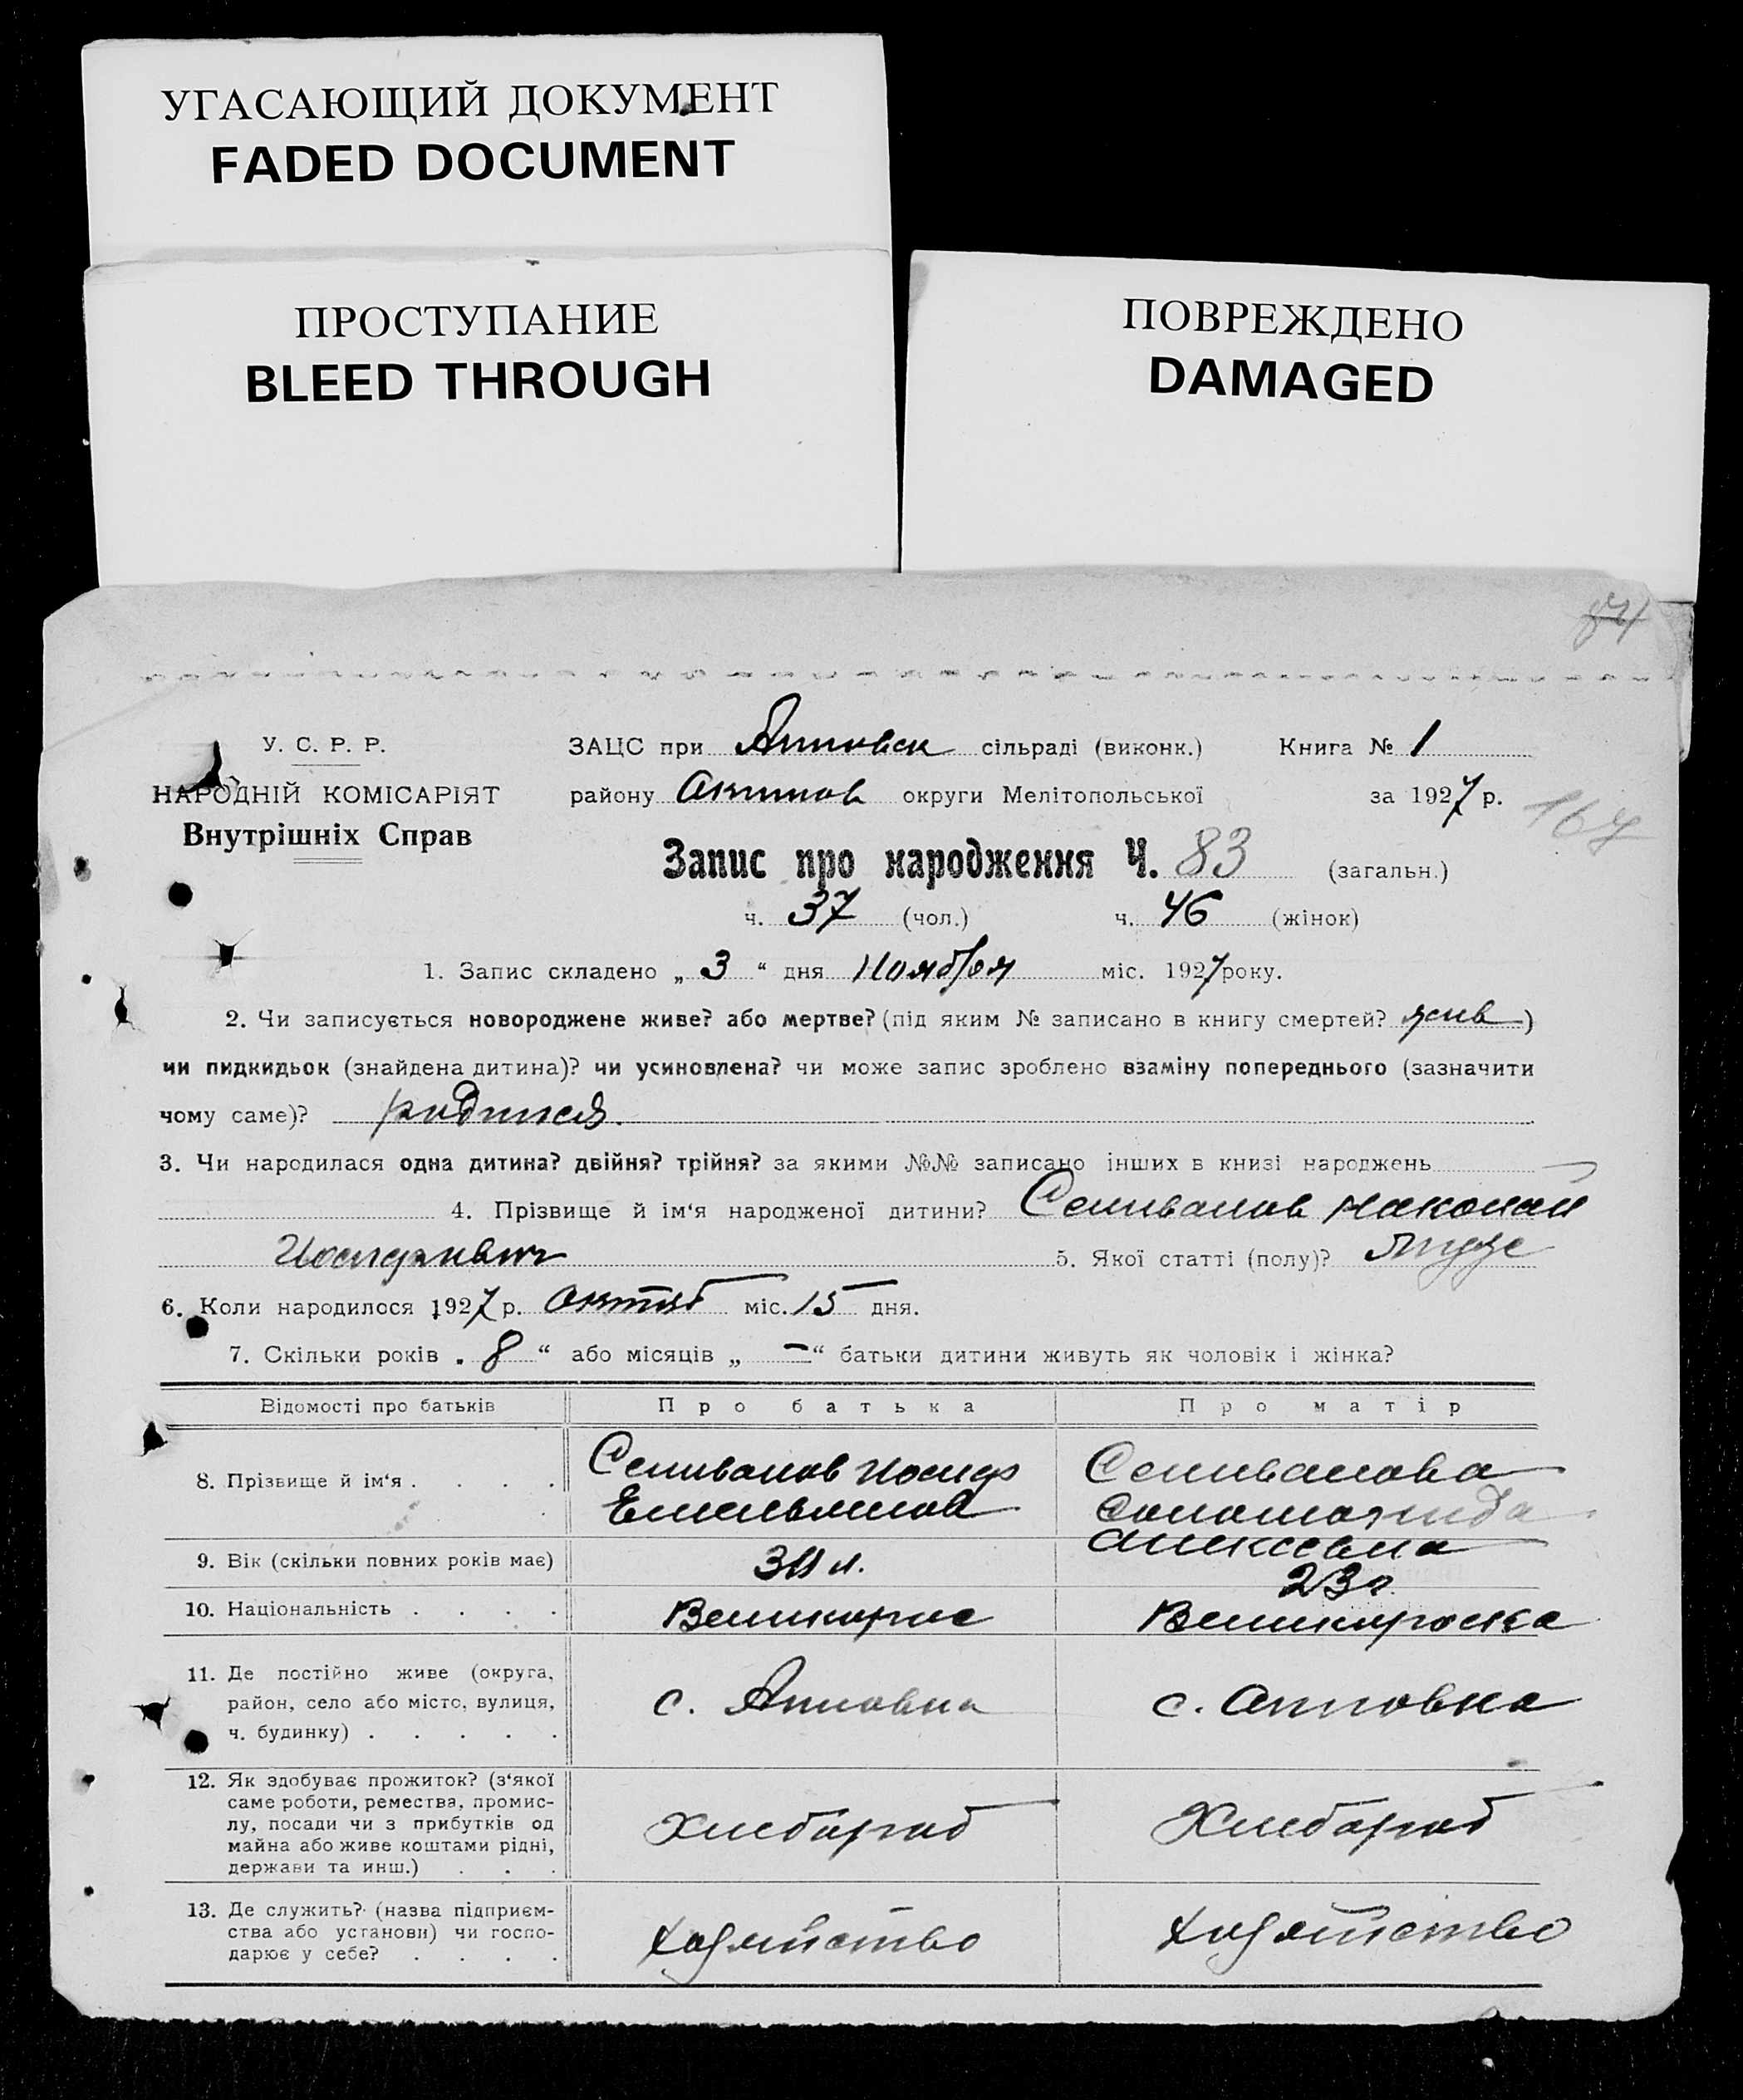 УГАСАЮЩИЙ ДОКУМЕНТ
FADED DOCUMENT
ПРОСТУПАНИЕ
BLEED THROUGH
ПОВРЕЖДЕНО
DAMAGED
84
У. С. Р. Р.
НАРОДНІЙ КОМІСАРІЯТ
Внутрішніх Справ
ЗАЦС при Анновск сільраді (виконк.) Книга № 1
району Акимов округи Мелітопольської за 1927 р.
167
Запис про народження Ч. 83 (загальн.)
ч. 37 (чол.) ч. 46 (жінок)
1. Запис складено „ 3 “ дня Ноября міс. 1927 року.
2. Чи записується новороджене живе? або мертве? (під яким № записано в книгу смертей? жив)
чи пидкидьок (знайдена дитина)? чи усиновлена? чи може запис зроблено взаміну попереднього (зазначити
чому саме)? родился.
3. Чи народилася одна дитина? двійня? трійня? за якими №№ записано інших в книзі народжень
4. Прізвище й ім‘я народженої дитини? Селиванов Николай
Иосифович 5. Якої статті (полу)?
6. Коли народилося 1927 р. Октяб міс. 15 дня.
7. Скільки років „ 8 “ або місяців „ — “ батьки дитини живуть як чоловік і жінка?
Відомості про батьків Про батька Про матір
8. Прізвище й ім‘я . . . . Селиванов Иосиф Селиванова
Емельянов
Алексеевна
9. Вік (скільки повних років має) л. 23 г.
10. Національність . . . . Великорос Великороска
11. Де постійно живе (округа,
район, село або місто, вулиця, с. Анновка с. Анновка
ч. будинку) . . . . .
12. Як здобуває прожиток? (з‘якої
саме роботи, ремества, промис-
лу, посади чи з прибутків од Хлебороб Хлебороб
майна або живе коштами рідні,
держави та инш.) . . .
13. Де служить? (назва підприєм-
ства або установи) чи госпо- хозяйство хозяйство
дарює у себе? . . . .